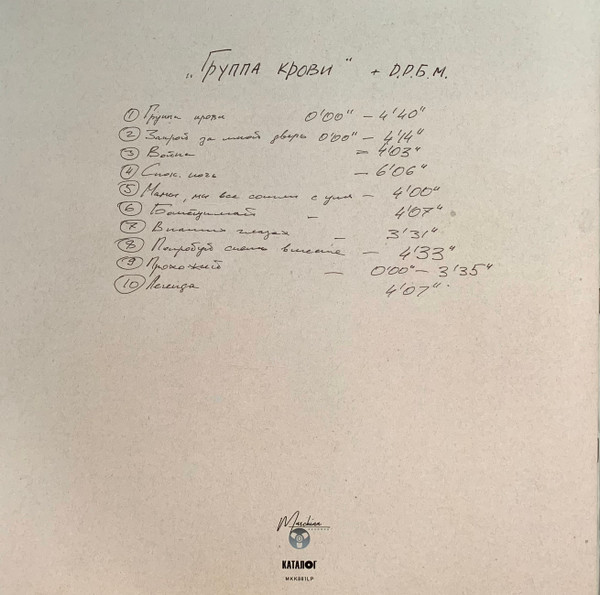 „Группа крови" + D.D.Б.М.
① Группа крови 0'00" – 4'40"
② Закрой за мной дверь 0'00" – 4'14"
③ Война = 4'03"
④ Спок. ночь – 6'06"
⑤ Мама, мы все сошли с ума – 4'00"
⑥ Бошетунмай – 4'07"
⑦ В наших глазах – 3'31"
⑧ Попробуй спеть вместе – 4'33"
⑨ Прохожий – 0'00" – 3'35"
⑩ Легенда 4'07"
Maschina
RECORDS
КАТАЛОГ
MKK881LP